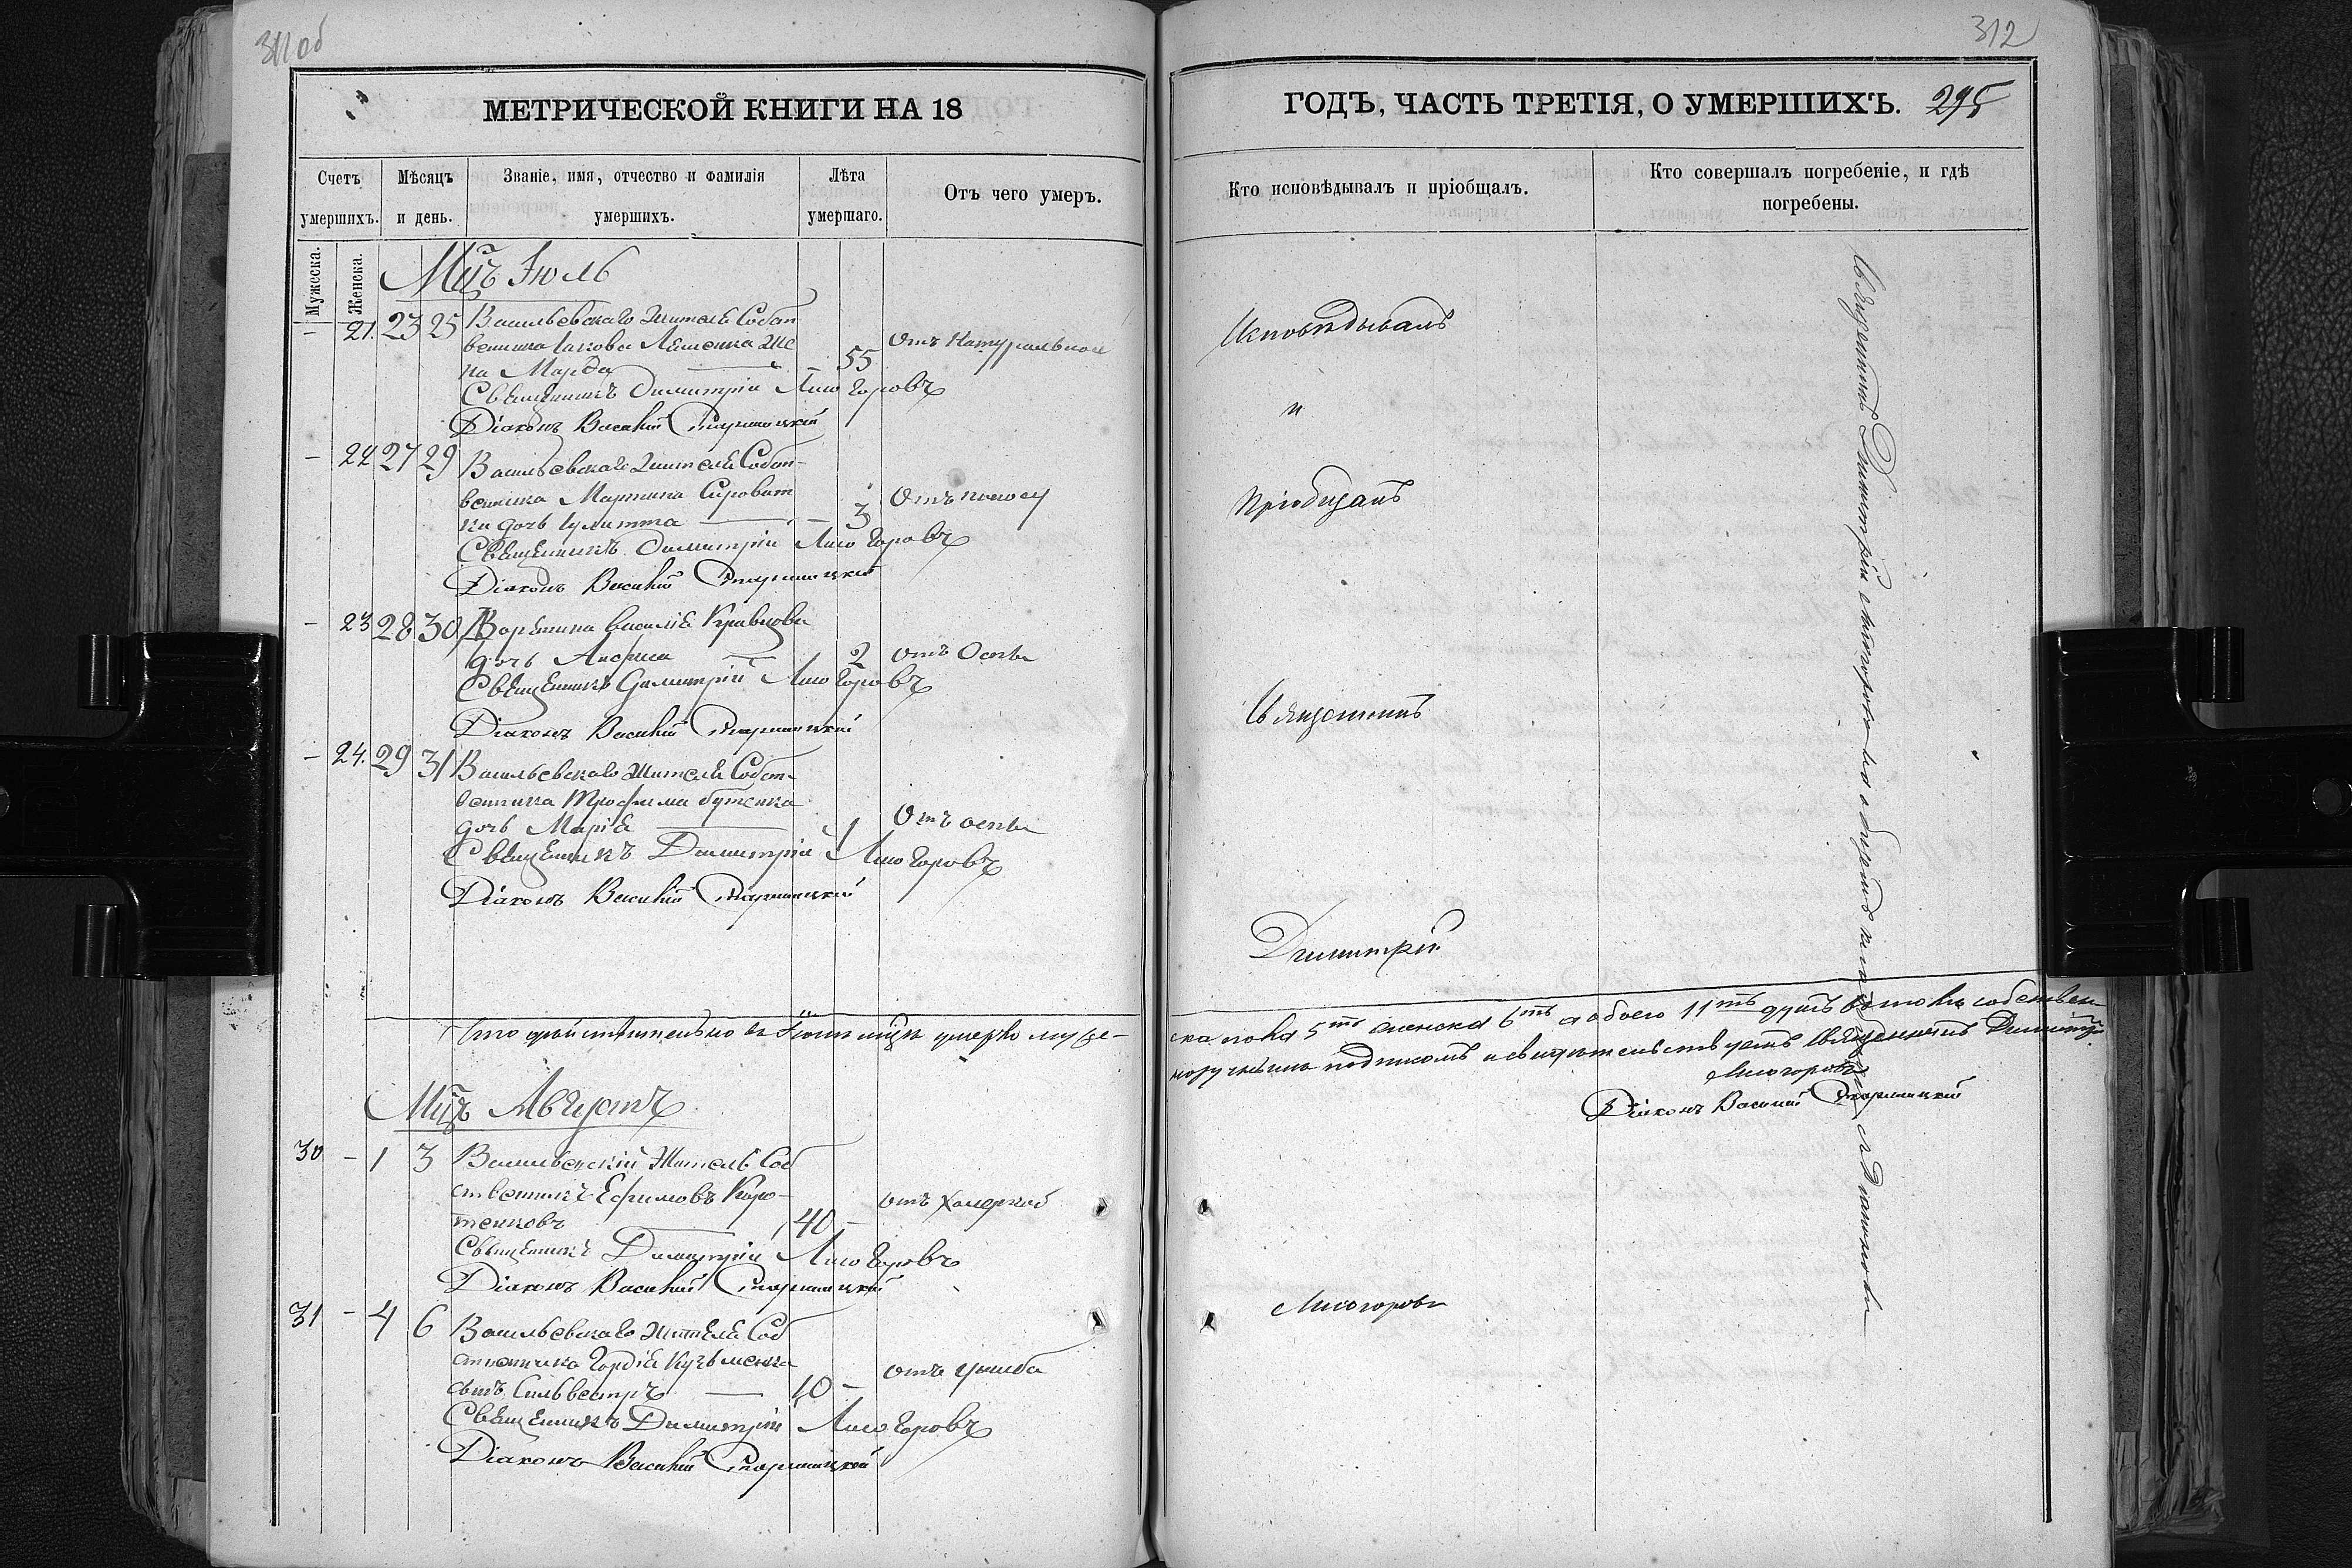 311 об
МЕТРИЧЕСКОЙ КНИГИ НА 18
Счетъ умершихъ.
Мѣсяцъ и день.
Званіе, имя, отчество и фамилія умершихъ.
Лѣта умершаго.
Отъ чего умеръ.
Мужеска.
Женска.
Мцъ Іюль
– 21. 23 25 Васильевскаго жителя Собст
венника Іакова Ляшенка же
на Марѳа — – 55 Отъ натуральной
Священникъ Димитрій Лисогоровъ
Діаконъ Василій
– 22 27 29 Васильевскаго жителя Собст-
венника Мартина Сироват
ки дочь Іулитта — – 3 Отъ поносу
Священникъ Димитрій Лисогоровъ
Діаконъ Василій
– 23 28 30 Дворянина Василія Кравцова
дочь Анфиса — 2 отъ Оспы
Священникъ Димитрій Лисогоровъ
Діаконъ Василій
– 24. 29 31 Васильевскаго жителя Собст-
венника Трофима Бутенка
дочь Марія — 1 Отъ оспы
Священникъ Димитрій Лисогоровъ
Діаконъ Василій
Что действительно въ Іюле мцѣ умерло муже-
Мцъ Августъ
30 – 1 3 Васильевскій житель Соб
ственникъ Ефимовъ Коро-
тенковъ — 40 – отъ Холерной
Священникъ Димитрій Лисогоровъ
Діаконъ Василій
31 – 4 6 Васильевскаго жителя Соб
ственника Гордія Кузьменка
сынъ Сильвестръ — 10 – отъ ушиба
Священникъ Димитрій Лисогоровъ
Діаконъ Василій
312
ГОДЪ, ЧАСТЬ ТРЕТІЯ, О УМЕРШИХЪ. 295
Кто исповѣдывалъ и пріобщалъ.
Кто совершалъ погребеніе, и гдѣ
погребены.
Исповѣдывалъ
и
Пріобщалъ
Священникъ
Димитрій
ска пола 5ть женска 6ть а обоего 11ть душъ въ томъ собствен-
норучнымъ подписомъ и свидѣтельствуетъ Священникъ Димитрій
Лисогоровъ
Діаконъ Василій
Лисогоровъ
Священникъ Димитрій Лисогоровъ на общемъ кладбищѣ съ Діакономъ